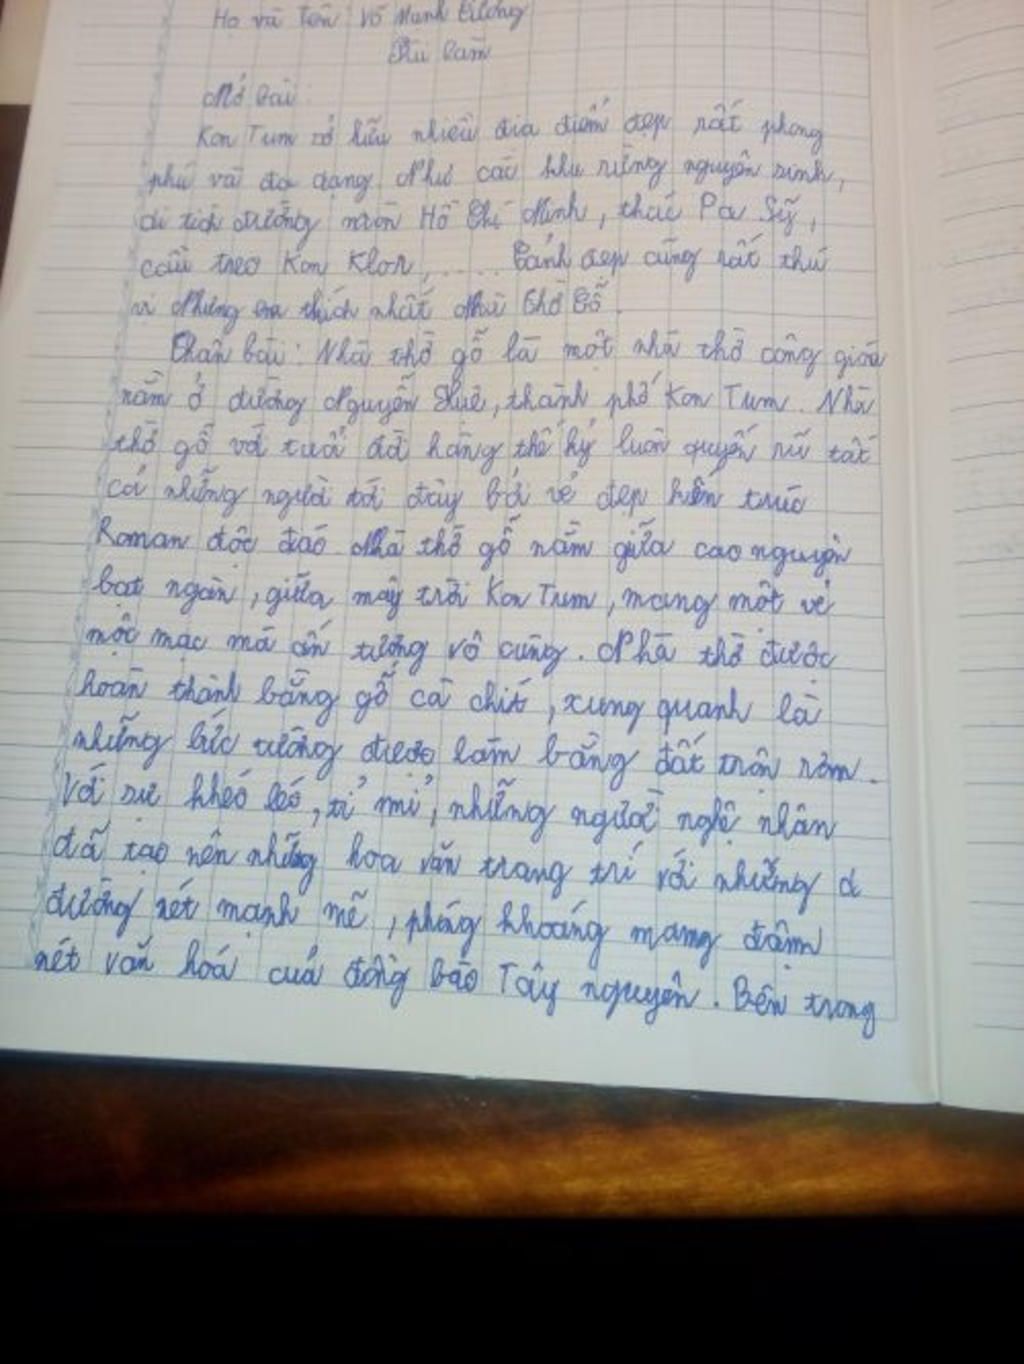 Họ và Tên: Võ Mạnh Cường
Bài làm
Mở bài:
Kon Tum sở hữu nhiều địa điểm đẹp rất phong
phú và đa dạng. Như các khu rừng nguyên sinh,
di tích đường mòn Hồ Chí Minh, thác Pa Sỹ,
cầu treo Kon Klor, ..... Cảnh đẹp cũng rất thú
vị. Nhưng em thích nhất Nhà Thờ Gỗ.
Thân bài: Nhà thờ gỗ là một nhà thờ công giáo
nằm ở đường Nguyễn Huệ, thành phố Kon Tum. Nhà
thờ gỗ với tuổi đã hàng thế kỷ luôn quyến rũ tất
cả những người tới đây bởi vẻ đẹp kiến trúc
Roman độc đáo. Nhà thờ gỗ nằm giữa cao nguyên
bạt ngàn, giữa mây trời Kon Tum, mang một vẻ
mộc mạc mà ấn tượng vô cùng. Nhà thờ được
hoàn thành bằng gỗ cà chít, xung quanh là
những bức tường được làm bằng đất trộn rơm.
Với sự khéo léo, tỉ mỉ, những người nghệ nhân
đã tạo nên những hoa văn trang trí với những đ
đường nét mạnh mẽ, phóng khoáng mang đậm
nét văn hoá của đồng bào Tây nguyên. Bên trong